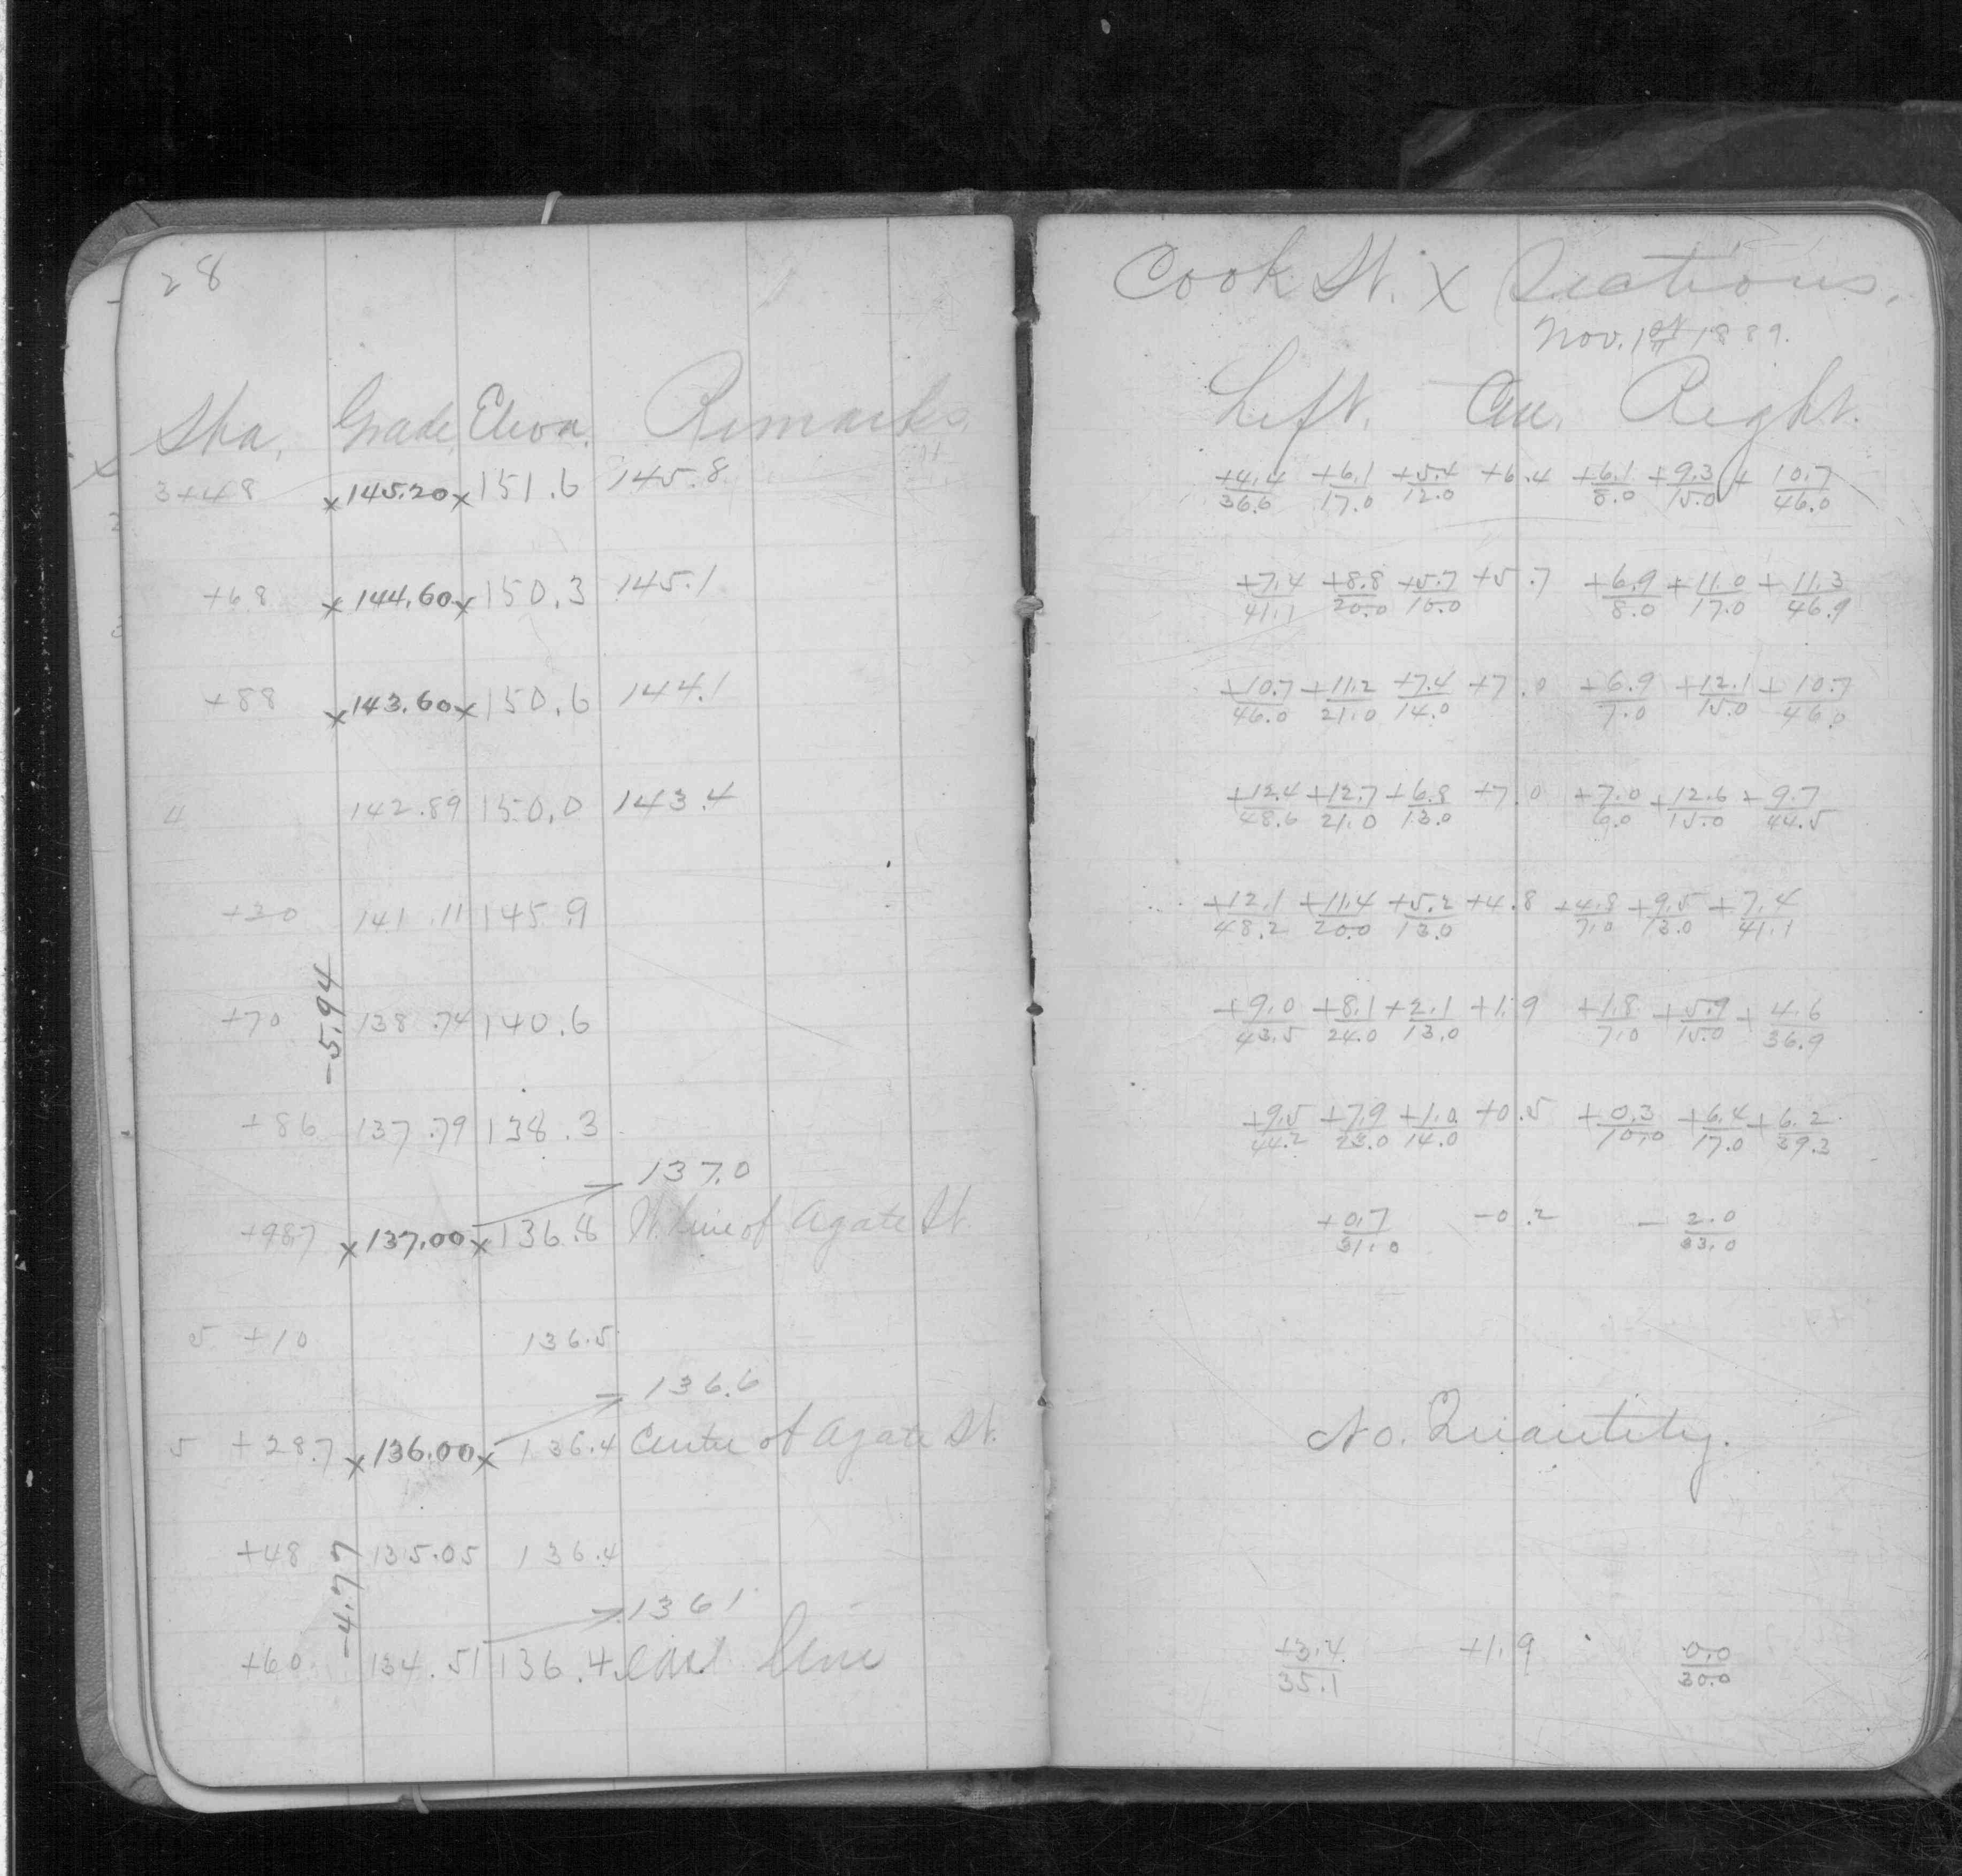 28
Sta. Grade Eleva. Remarks.
3+48 x 145.20 x 151.6 145.8
+68 x 144.60 x 150.3 145.1
+88 x 143.60 x 150.6 144.1
4 142.89 150.0 143.4
+30 141.11 145.9
-5.94
+70 138.74 140.6
+86 137.79 138.3
137.0
+987 x 137.00 x 136.8 W. Line of Agate St.
5 +10 136.5
136.6
5 +28.7 x 136.00 x 136.4 Centre of Agate St.
+48 135.05 136.4
-4.77
136 1
+60 134.51 136.4 East Line
Cook St. X Sections.
Nov. 1st 1889.
Left. Cen. Right.
+4.4/36.6 +6.1/17.0 +5.4/12.0 +6.4 +6.1/8.0 +9.3/15.0 +10.7/46.0
+7.4/41.1 +8.8/20.0 +5.7/10.0 +5.7 +6.9/8.0 +11.0/17.0 +11.3/46.9
+10.7/46.0 +11.2/21.0 +7.4/14.0 +7.0 +6.9/7.0 +12.1/15.0 +10.7/46.0
+12.4/48.6 +12.7/21.0 +6.8/13.0 +7.0 +7.0/6.0 +12.6/15.0 +9.7/44.5
+12.1/48.2 +11.4/20.0 +5.2/13.0 +4.8 +4.8/7.0 +9.5/13.0 +7.4/41.1
+9.0/43.5 +8.1/24.0 +2.1/13.0 +1.9 +1.8/7.0 +5.9/15.0 +4.6/36.9
+9.5/44.2 +7.9/23.0 +1.0/14.0 +0.5 +0.3/10.0 +6.4/17.0 +6.2/39.3
+0.7/31.0 -0.2 -2.0/33.0
No. Quantity.
+3.4/35.1 +1.9 0.0/30.0